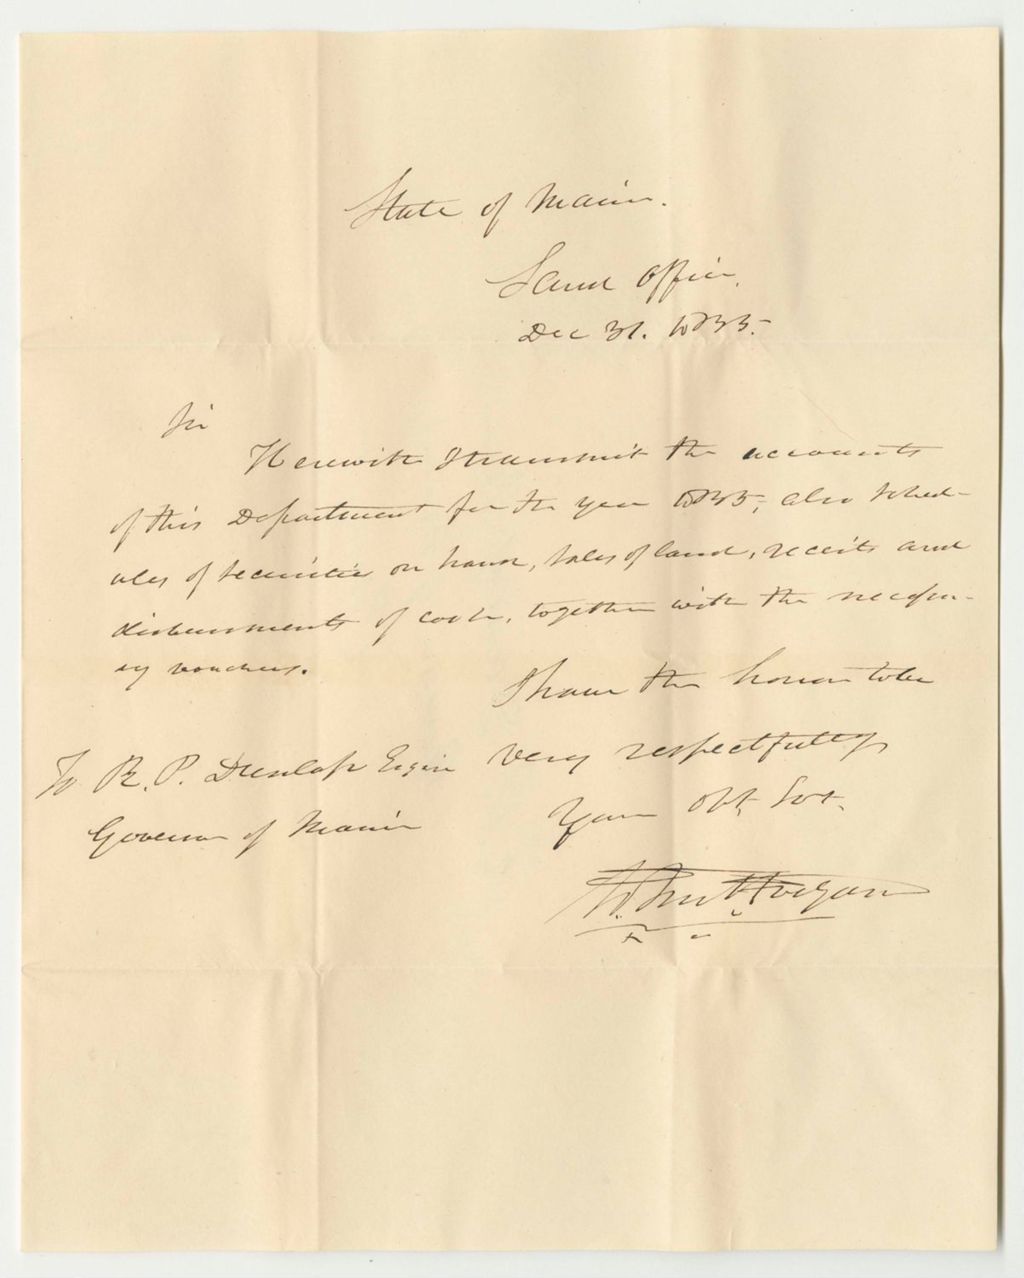 State of Maine.
Land Office,
Dec 31. 1835.
Sir
Herewith I transmit the accounts
of this Department for the year 1835, also sched-
ules of securities on hand, sales of land, receits and
disbursements of cash, together with the necessa-
ry vouchers.
I have the honor to be
To R. P. Dunlap Esquire very respectfully
Governor of Maine Your Obt, Svt.